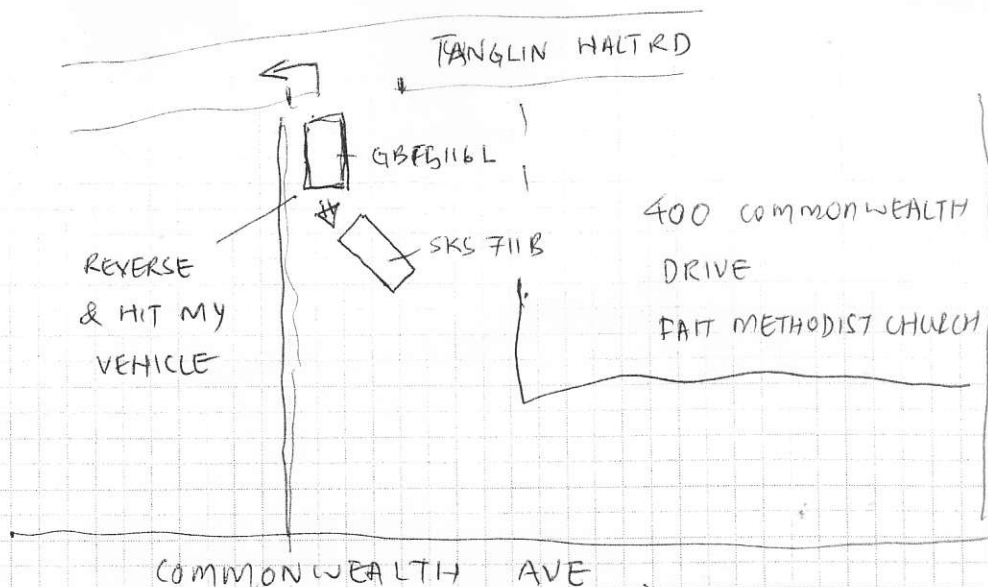 TANGLIN HALT RD
GBF5116L
SKS 711B
REVERSE
& HIT MY
VEHICLE
400 COMMONWEALTH
DRIVE
FAIT METHODIST CHURCH
COMMONWEALTH AVE